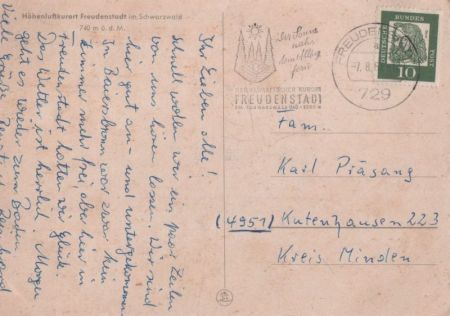 Höhenluftkurort Freudenstadt im Schwarzwald
740 m ü. d. M.
Ihr Lieben alle!
Schnell wollen wir ein paar Zeilen
von uns hören lassen. Wir sind
hier gut an- und untergekommen
In Baiersbronn war zwar kein
Zimmer mehr frei, aber hier in
Freudenstadt hatten wir Glück.
Das Wetter ist herrlich. Morgen
geht es wieder zum Baden
Viele Grüße
Der Sonne
nahe
dem Alltag
fern
HEILKLIMATISCHER KURORT
FREUDENSTADT
IM SCHWARZWALD
FREUDEN
-7.8.6
729
DEUTSCHE BUNDESPOST
10
Fam.
Karl Präsang
(4951) Kutenhausen 223
Kreis Minden